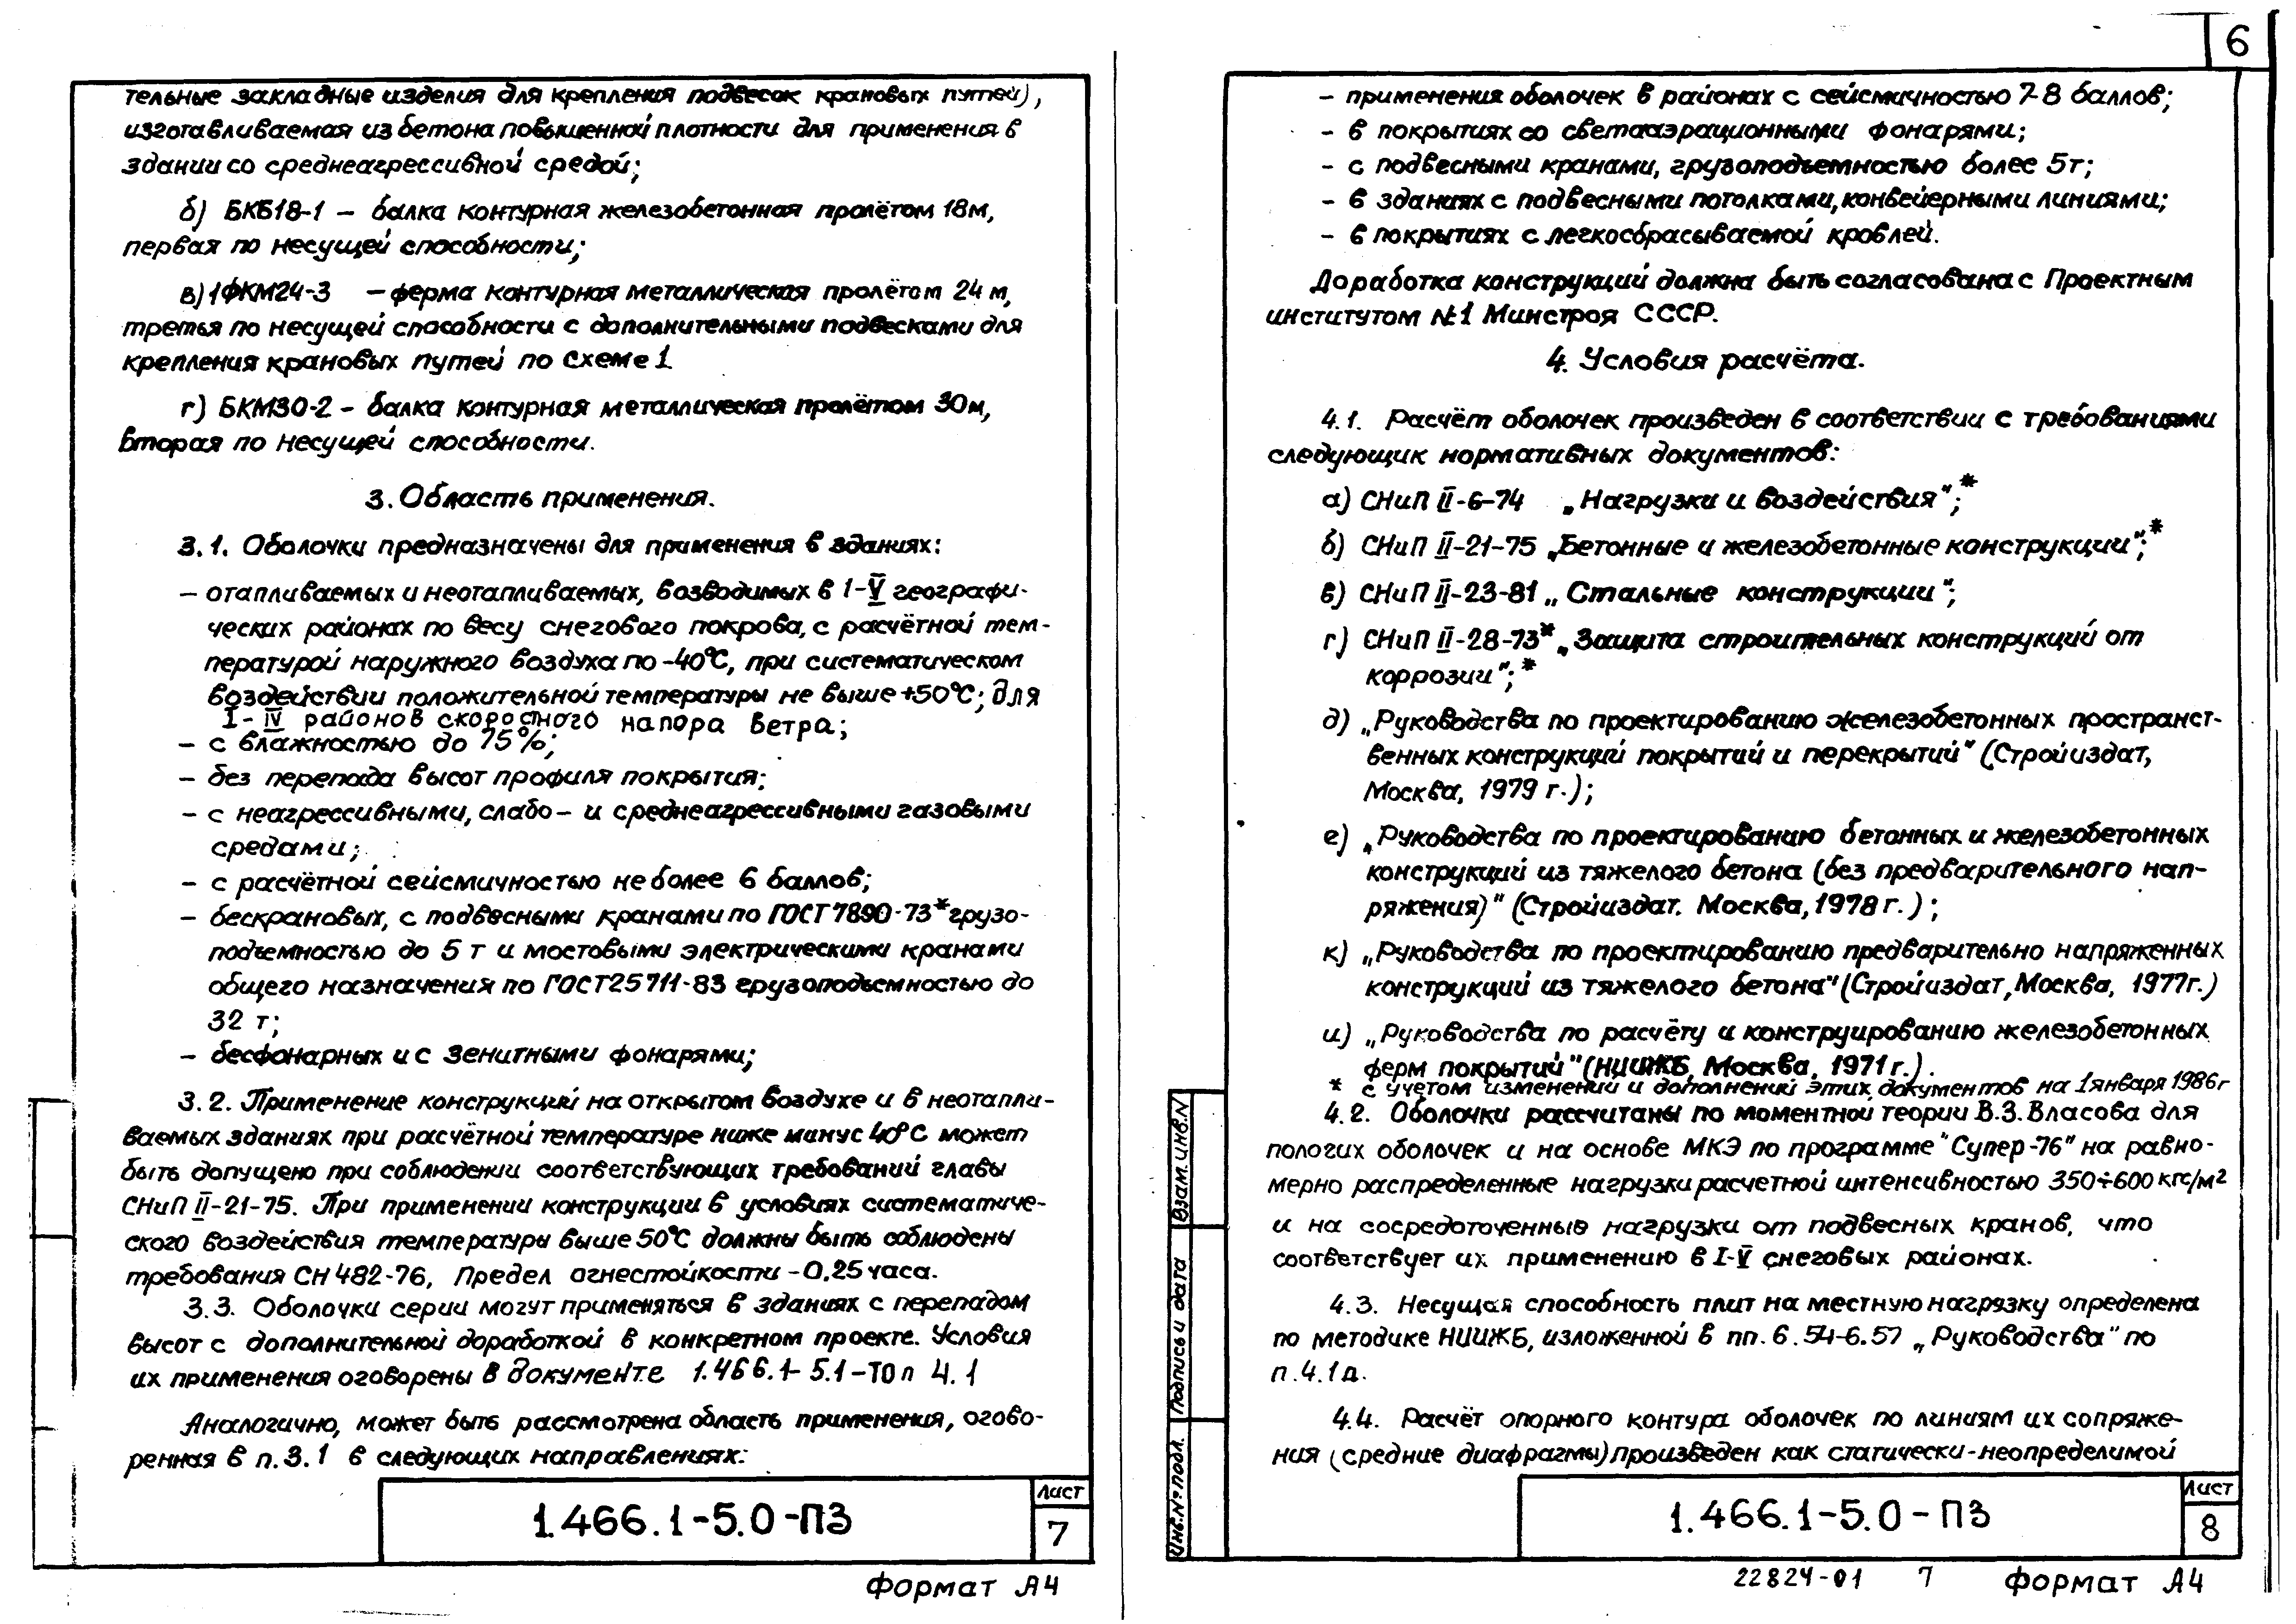 тельные закладные изделия для крепления подвесок крановых путей),
изготавливаемая из бетона повышенной плотности для применения в
здании со среднеагрессивной средой;
б) БКБ18-1 – балка контурная железобетонная пролётом 18м,
первая по несущей способности;
в) 1ФКМ24-3 – ферма контурная металлическая пролётом 24 м,
третья по несущей способности с дополнительными подвесками для
крепления крановых путей по схеме 1
г) БКМ30-2 – балка контурная металлическая пролётом 30м,
вторая по несущей способности.
3. Область применения.
3.1. Оболочки предназначены для применения в зданиях:
– отапливаемых и неотапливаемых, возводимых в I-V географи-
ческих районах по весу снегового покрова, с расчётной тем-
пературой наружного воздуха по -40°С, при систематическом
воздействии положительной температуры не выше +50°С; для
I-IV районов скоростного напора ветра;
– с влажностью до 75%;
– без перепада высот профиля покрытия;
– с неагрессивными, слабо- и среднеагрессивными газовыми
средами;
– с расчётной сейсмичностью не более 6 баллов;
– бескрановых, с подвесными кранами по ГОСТ 7890-73* грузо-
подъемностью до 5 т и мостовыми электрическими кранами
общего назначения по ГОСТ 25711-83 грузоподъемностью до
32 т;
– бесфонарных и с зенитными фонарями;
3.2. Применение конструкций на открытом воздухе и в неотапли-
ваемых зданиях при расчётной температуре ниже минус 40°С может
быть допущено при соблюдении соответствующих требований главы
СНиП II-21-75. При применении конструкции в условиях систематиче-
ского воздействия температуры выше 50°С должны быть соблюдены
требования СН 482-76, Предел огнестойкости – 0.25 часа.
3.3. Оболочки серии могут применяться в зданиях с перепадом
высот с дополнительной доработкой в конкретном проекте. Условия
их применения оговорены в документе 1.466.1-5.1-ТО п 4.1
Аналогично, может быть рассмотрена область применения, огово-
ренная в п.3.1 в следующих направлениях:
1.466.1-5.0-ПЗ
Лист
7
Формат А4
6
– применения оболочек в районах с сейсмичностью 7-8 баллов;
– в покрытиях со светоаэрационными фонарями;
– с подвесными кранами, грузоподъемностью более 5т;
– в зданиях с подвесными потолками, конвейерными линиями;
– в покрытиях с легкосбрасываемой кровлей.
Доработка конструкций должна быть согласована с Проектным
институтом №1 Минстроя СССР.
4. Условия расчёта.
4.1. Расчёт оболочек произведен в соответствии с требованиями
следующик нормативных документов:
а) СНиП II-6-74 „Нагрузки и воздействия";*
б) СНиП II-21-75 „Бетонные и железобетонные конструкции";*
в) СНиП II-23-81 „Стальные конструкции";
г) СНиП II-28-73* „Защита строительных конструкций от
коррозии";*
д) „Руководства по проектированию железобетонных пространст-
венных конструкций покрытий и перекрытий" (Стройиздат,
Москва, 1979 г.);
е) „Руководства по проектированию бетонных и железобетонных
конструкций из тяжелого бетона (без предварительного нап-
ряжения)" (Стройиздат. Москва, 1978 г.);
к) „Руководства по проектированию предварительно напряженных
конструкций из тяжелого бетона" (Стройиздат, Москва, 1977г.)
и) „Руководства по расчёту и конструированию железобетонных
ферм покрытий" (НИИЖБ, Москва, 1971 г.).
* с учетом изменений и дополнений этих документов на 1 января 1986 г
4.2. Оболочки рассчитаны по моментной теории В.З. Власова для
пологих оболочек и на основе МКЭ по программе "Супер-76" на равно-
мерно распределенные нагрузки расчетной интенсивностью 350÷600 кгс/м²
и на сосредоточенные нагрузки от подвесных кранов, что
соответствует их применению в I-V снеговых районах.
4.3. Несущая способность плит на местную нагрязку определена
по методике НИИЖБ, изложенной в пп. 6.54-6.57 „Руководства" по
п.4.1д.
4.4. Расчёт опорного контура оболочек по линиям их сопряже-
ния (средние диафрагмы) произведен как статически-неопределимой
Взам. инв.N
Подпись и дата
Инв.№ подл.
1.466.1-5.0-ПЗ
Лист
8
22824-01 7 Формат А4